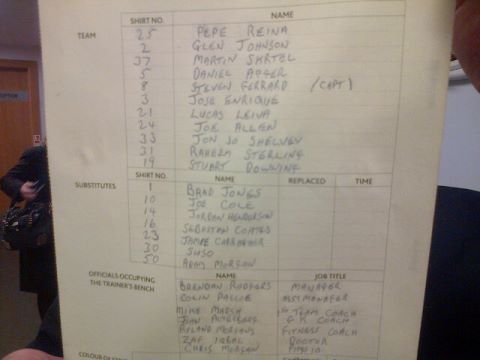 SHIRT NO. NAME
TEAM
25 PEPE REINA
2 GLEN JOHNSON
37 MARTIN SKRTEL
5 DANIEL AGGER
8 STEVEN GERRARD (CAPT)
3 JOSE ENRIQUE
21 LUCAS LEIVA
24 JOE ALLEN
33 JON JO SHELVEY
31 RAHEEM STERLING
19 STUART DOWNING
SUBSTITUTES SHIRT NO. NAME REPLACED TIME
1 BRAD JONES
10 JOE COLE
14 JORDAN HENDERSON
16 SEBASTIAN COATES
23 JAMIE CARRAGHER
30 SUSO
50 ADAM MORGAN
OFFICIALS OCCUPYING THE TRAINER'S BENCH NAME JOB TITLE
BRENDAN RODGERS MANAGER
COLIN PASCOE ASST MANAGER
MIKE MARSH 1st TEAM COACH
JOHN ACHTERBERG G.K. COACH
RYLAND MORGANS FITNESS COACH
ZAF IQBAL DOCTOR
CHRIS MORGAN PHYSIO